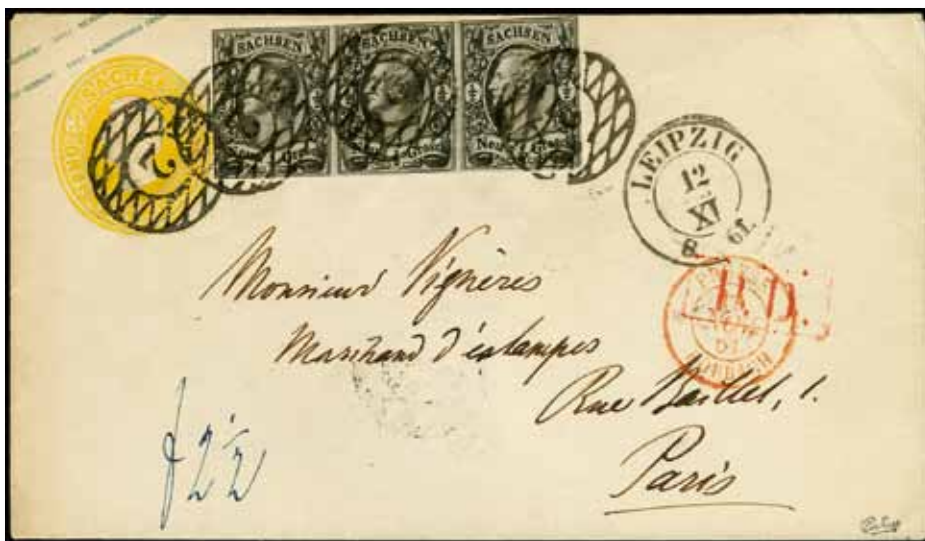 SACHSEN
SACHSEN
SACHSEN
2
LEIPZIG
12
XI
8 61.
P.D.
Monsieur Vignères
Marchand d'estampes
Rue Baillet, 1.
Paris
f 2 1/2